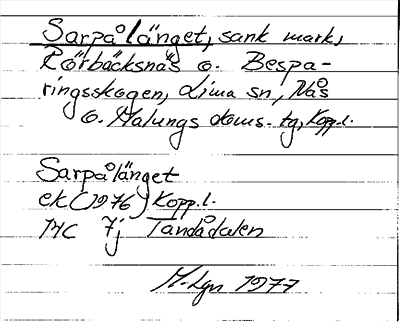 Sarpålänget, sank mark,
Rörbäcksnäs o. Bespa-
ringsskogen, Lima sn, Nås
o. Malungs doms. tg, Kopp.l.
Sarpålänget
ek (1976) Kopp.l.
14C 7j Tandådalen
M. Lgn 1977